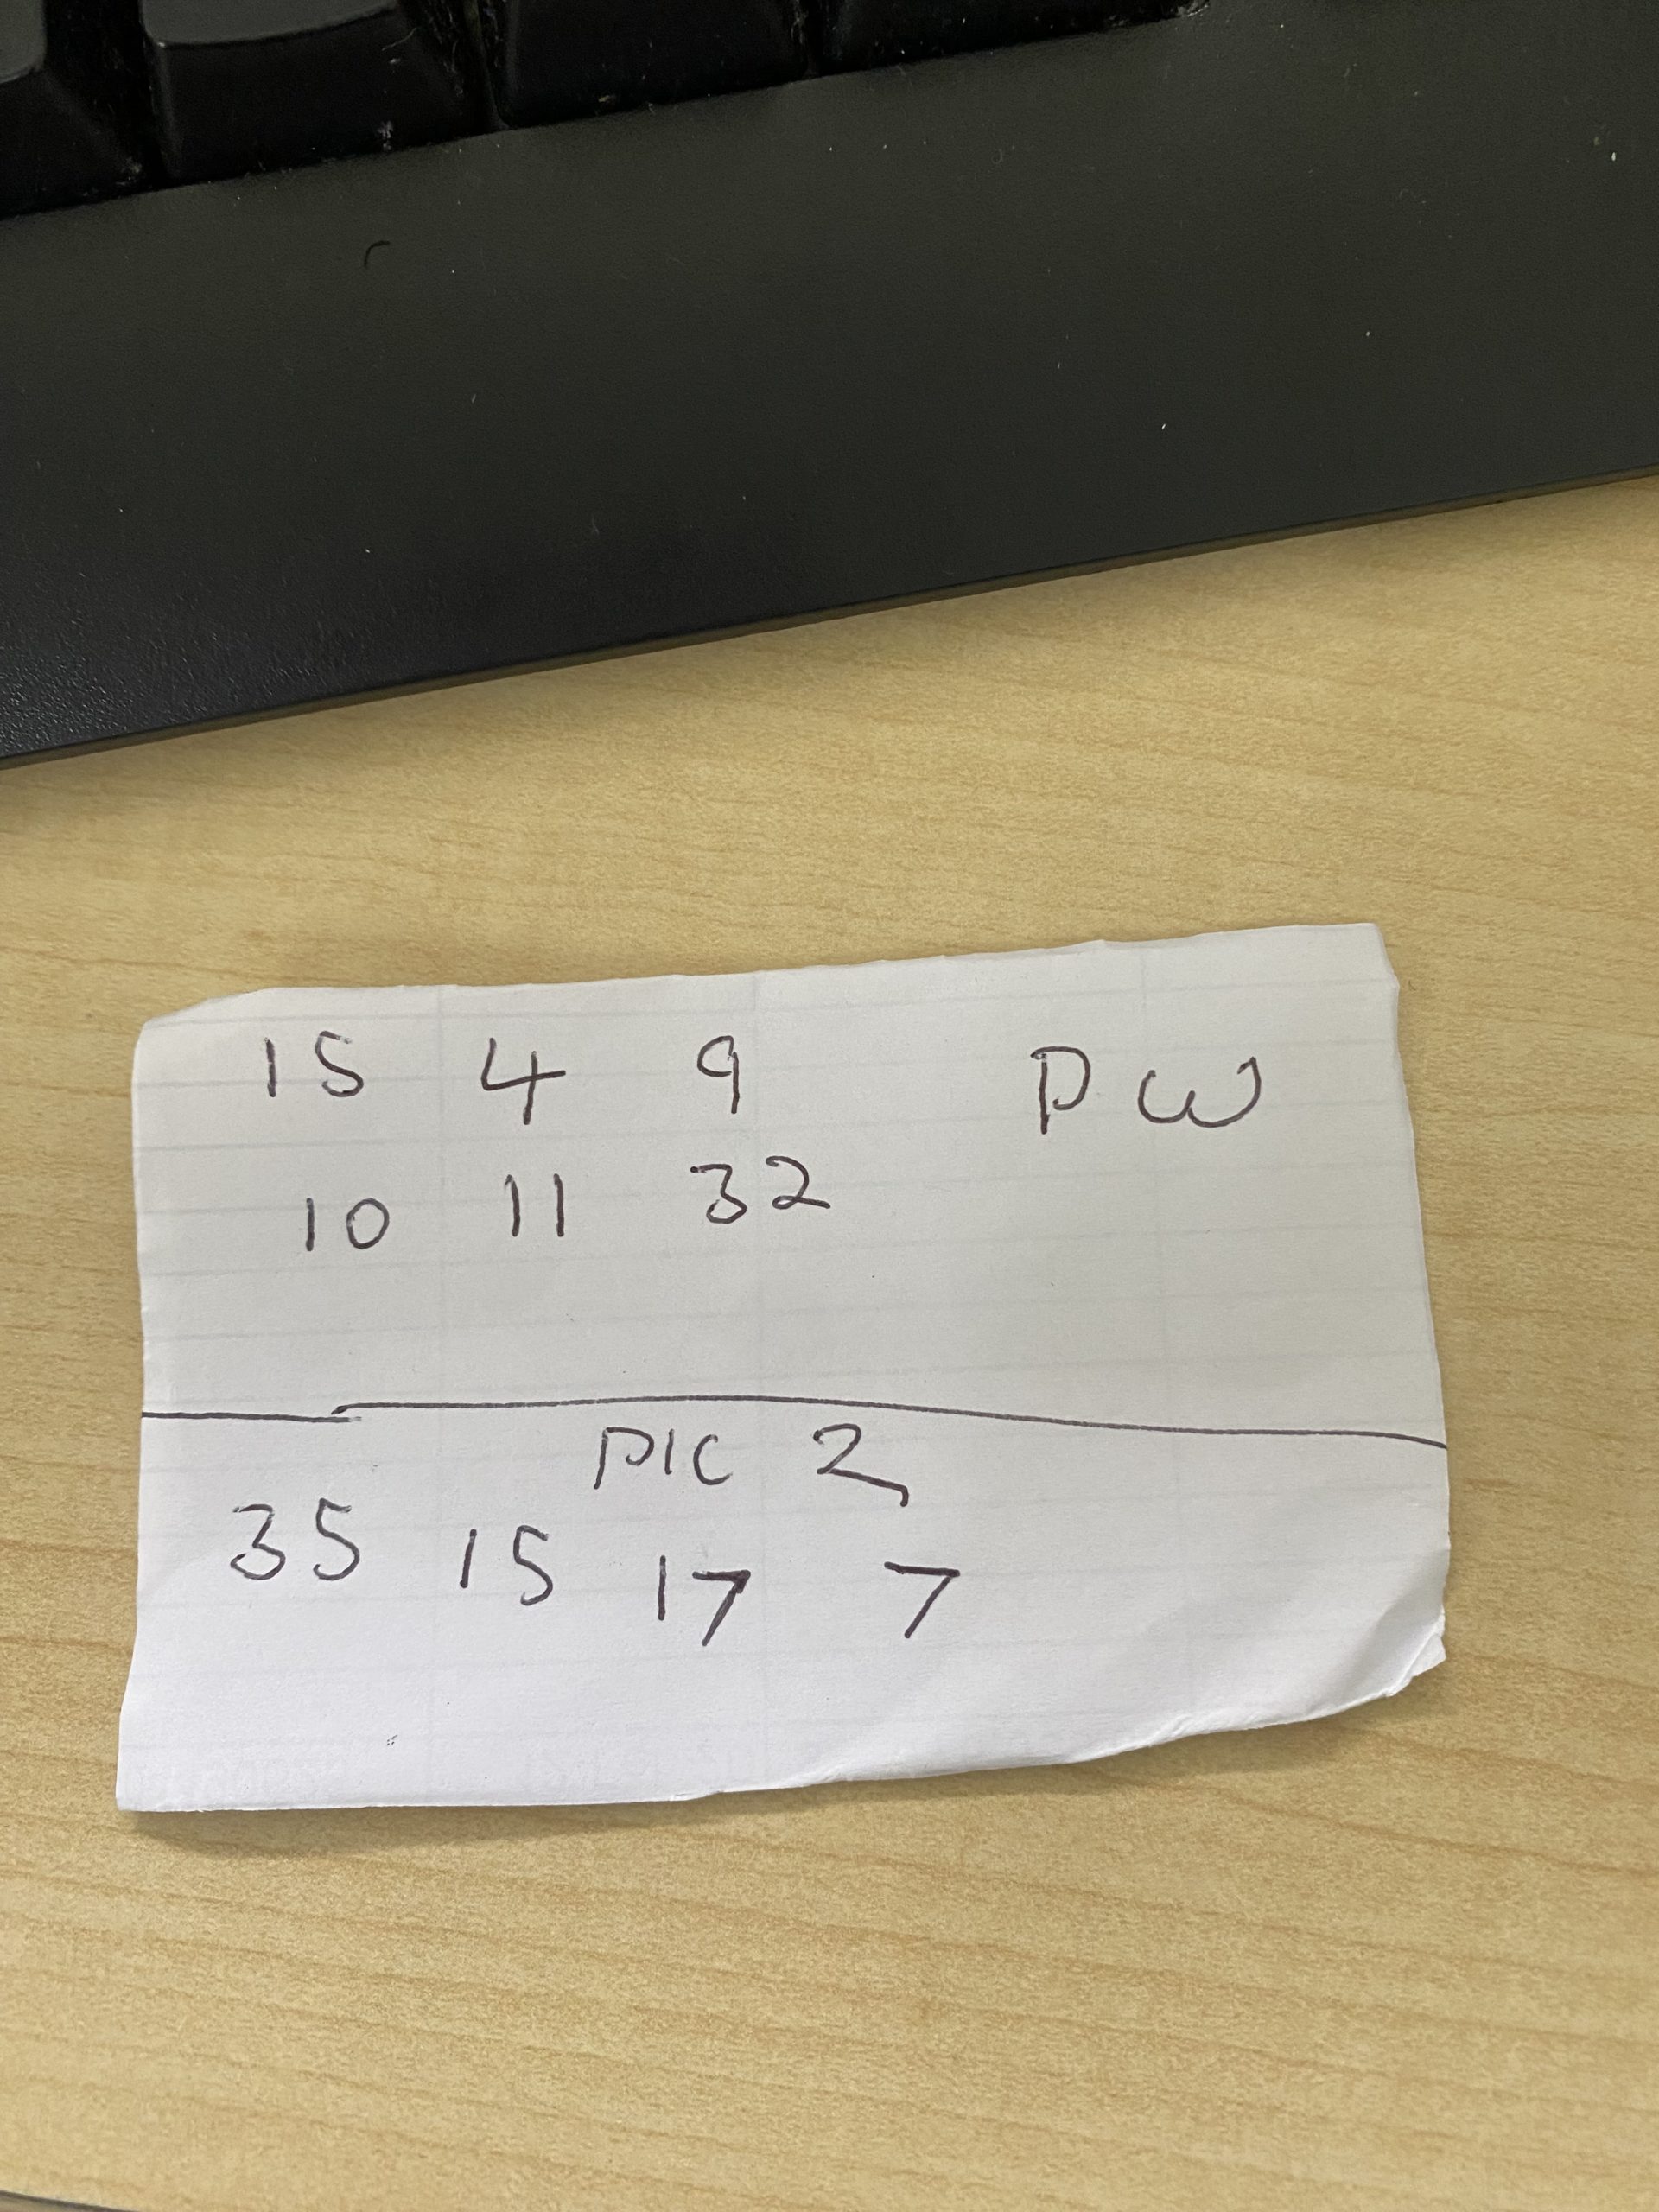 15 4 9 PW
10 11 32
PIC 2
35 15 17 7